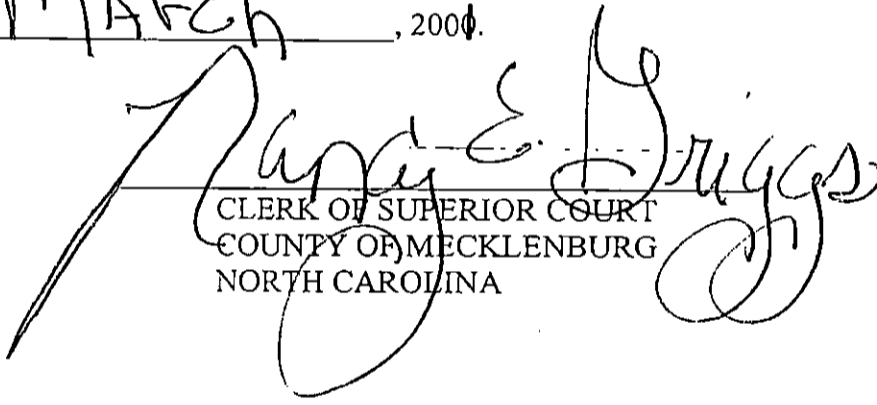 March, 2001.
Nancy E. Griggs
CLERK OF SUPERIOR COURT
COUNTY OF MECKLENBURG
NORTH CAROLINA